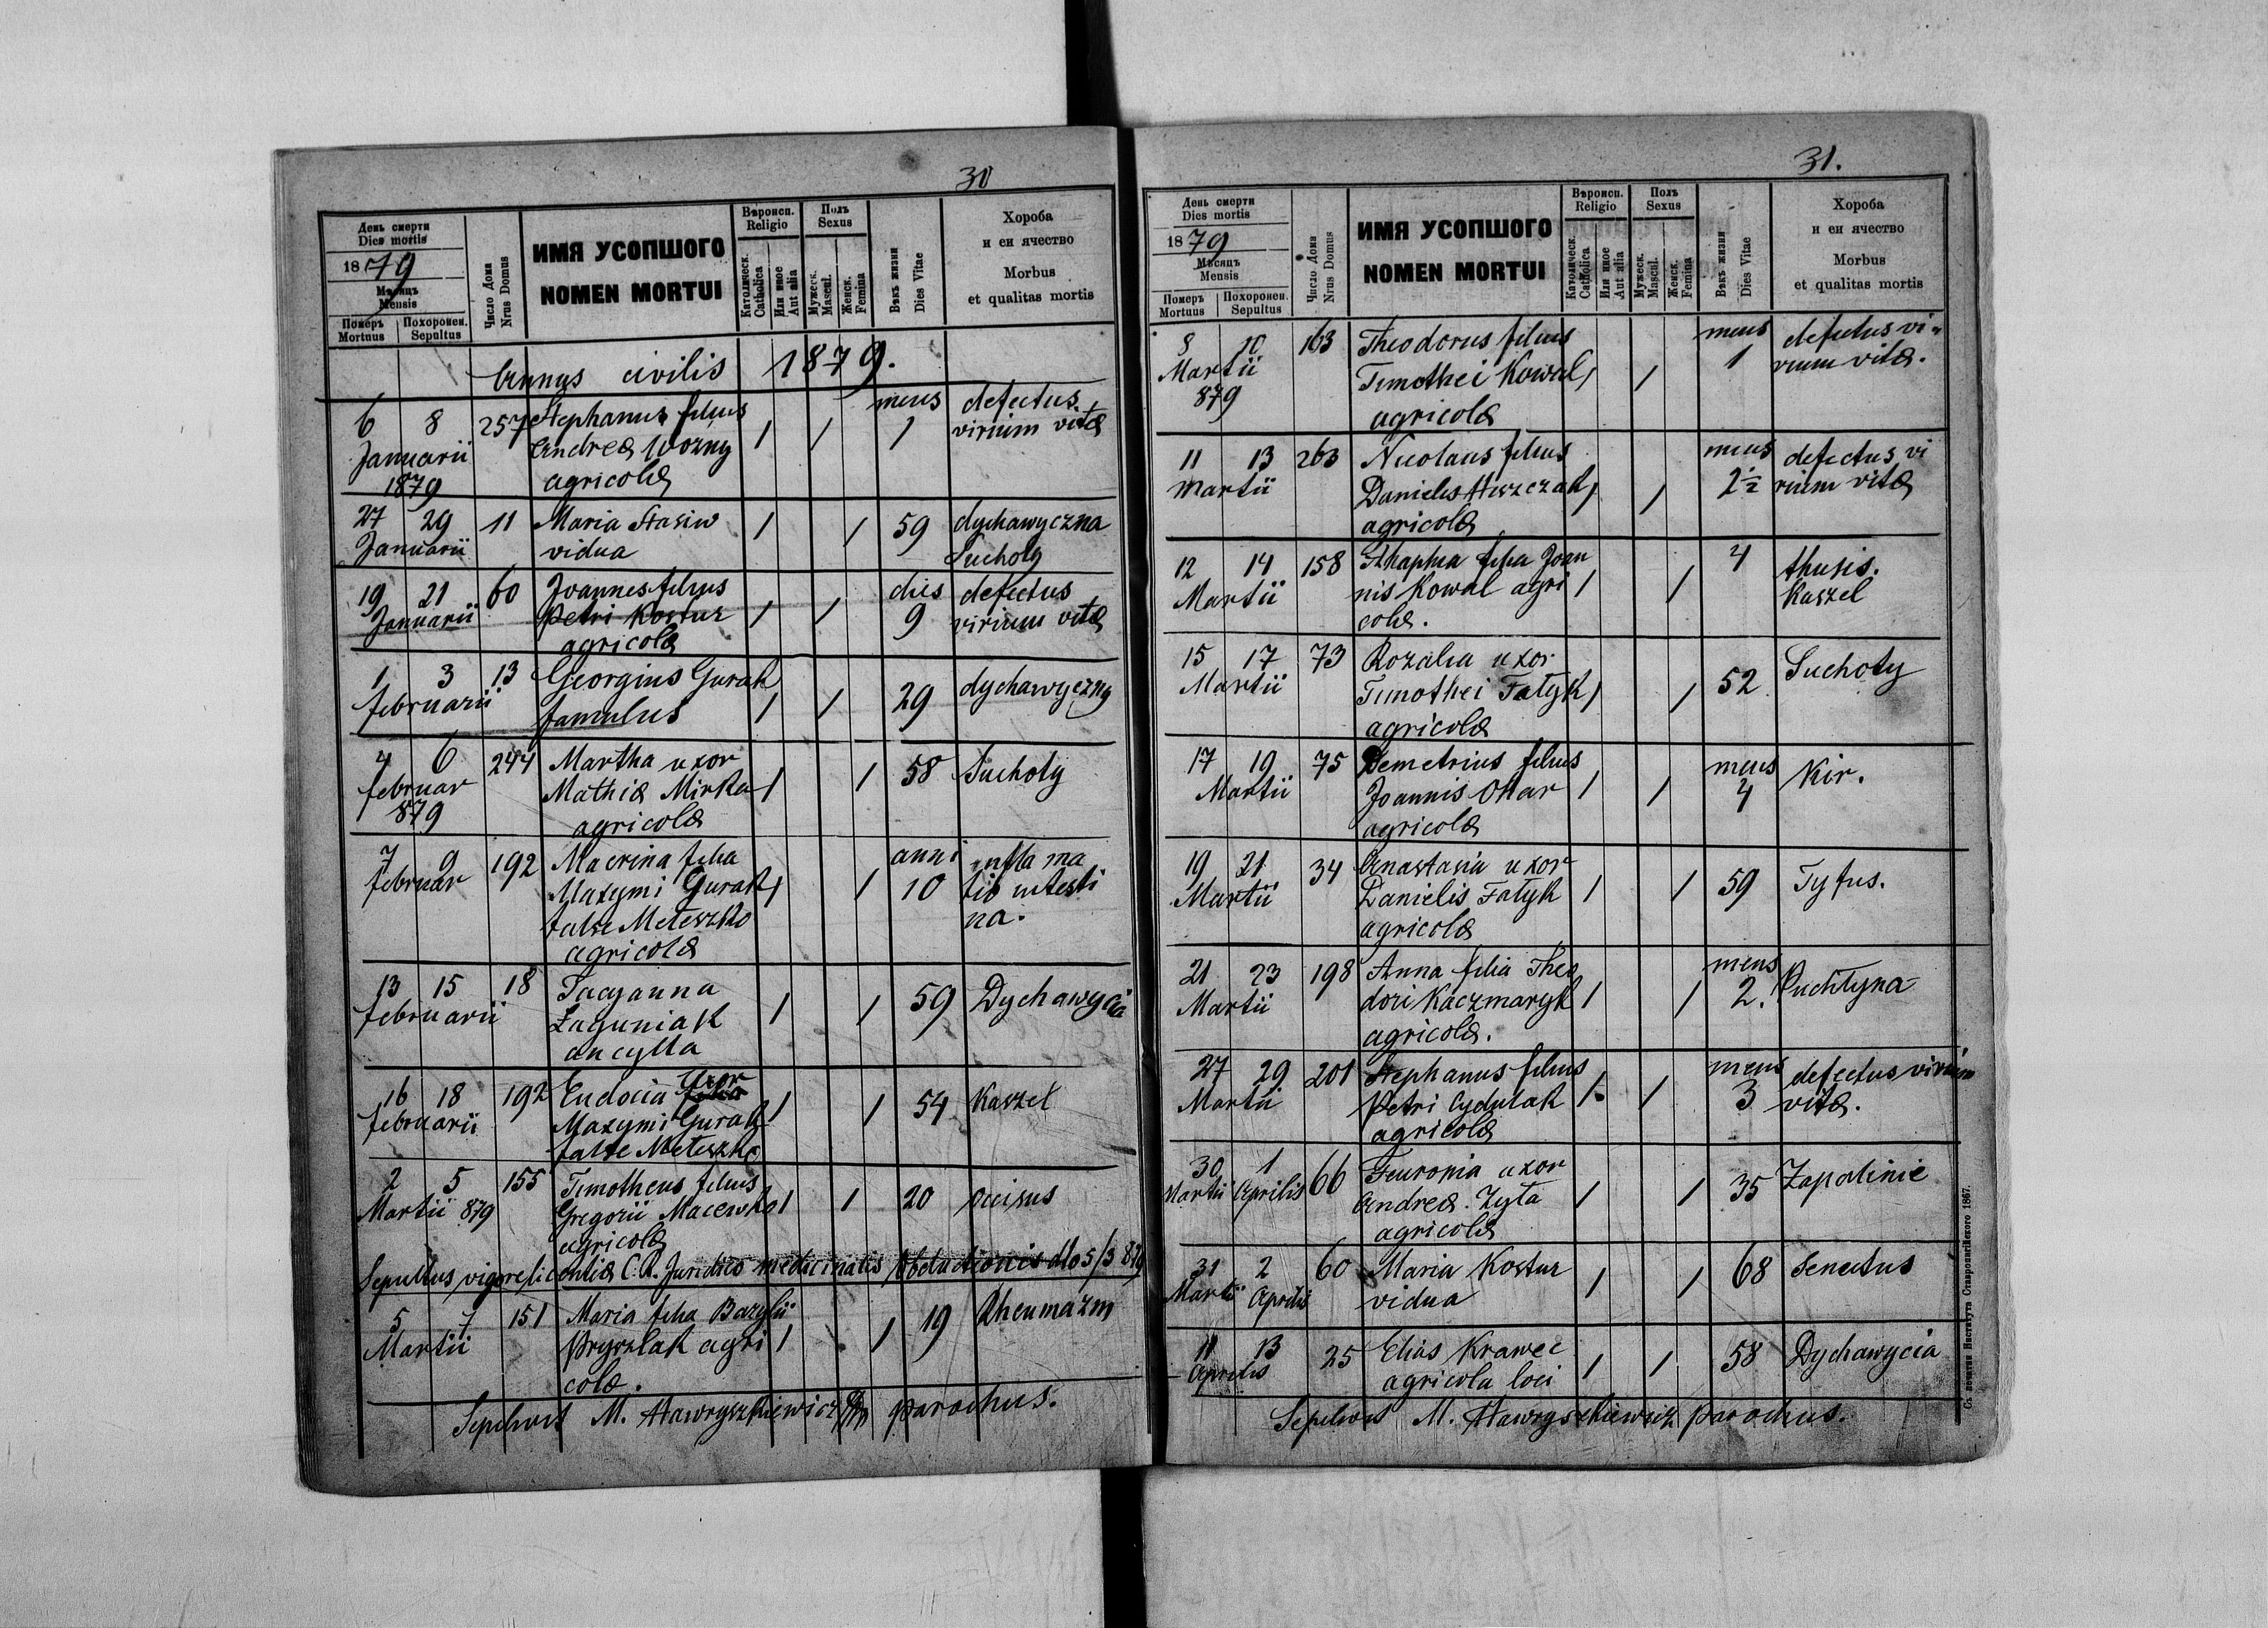 30
День смерти
Dies mortis
1879
Мѣсяць
Mensis
Померъ Mortuus
Похоронен. Sepultus
Число Дома
Nrus Domus
ИМЯ УСОПШОГО
NOMEN MORTUI
Вѣроисп.
Religio
Католическ.
Catholica
Или иное
Aut alia
Полъ
Sexus
Мужеск.
Mascul.
Женск.
Femina
Вѣкъ жизни
Dies Vitae
Хороба
и еи ячество
Morbus
et qualitas mortis
Annus civilis 1879.
6 8 257 Stephanus filius mens defectus
Januarii Andreæ Wozny / / 1 virium vitæ
1879 agricolæ
27 29 11 Maria Stasiw / / 59 dychawyczna
Januarii vidua Suchoty
19 21 60 Joannes filius dies defectus
Januarii Petri Kostur / / 9 virium vitæ
agricolæ
1 3 13 Georgius Gurak 29 dychawyczny
februarii famulus / /
4 6 244 Martha uxor 58 Suchoty
februar Mathiæ Mirka / /
879 agricolæ
7 9 192 Macrina filia anni infla ma
februar Maxymi Gurak / / 10 tio intesti
false Meteszko na.
agricolæ
13 15 18 Tacyanna 59 Dychawycia
februarii Łaguniak / /
ancylla
16 18 192 Eudocia uxor 54 Kaszel
februarii Maxymi Gurak / /
false Meteszko
2 5 155 Timotheus filius 20 occisus
Martii 879 Gregorii Macewko / /
agricolæ
Sepultus vigore licentiæ C.R. Juridico medicinalis obductionis dto 5/3 879
5 7 151 Maria filia Bazylii 19 Rheumazm
Martii Pryszlak agri / /
colæ.
Sepelivit M. Hawryszkiewicz parochus.
31.
День смерти
Dies mortis
1879
Мѣсяць
Mensis
Померъ Mortuus
Похоронен. Sepultus
Число Дома
Nrus Domus
ИМЯ УСОПШОГО
NOMEN MORTUI
Вѣроисп.
Religio
Католическ.
Catholica
Или иное
Aut alia
Полъ
Sexus
Мужеск.
Mascul.
Женск.
Femina
Вѣкъ жизни
Dies Vitae
Хороба
и еи ячество
Morbus
et qualitas mortis
8 10 163 Theodorus filius mens defectus vi-
Martii Timothei Kowal / / 1 rium vitæ.
879 agricolæ
11 13 263 Nicolaus filius mens defectus vi
Martii Danielis Hiszczak / / 2 1/2 rium vitæ
agricolæ
12 14 158 Ahaphia filia Joan 4 thusis.
Martii nis Kowal agri / / Kaszel
colæ.
15 17 73 Rozalia uxor 52 Suchoty
Martii Timothei Fatyk / /
agricolæ
17 19 75 Demetrius filius mens Kir.
Martii Joannis Ohar / / 4
agricolæ
19 21 34 Anastasia uxor 59 Tyfus.
Martii Danielis Fatyk / /
agricolæ
21 23 198 Anna filia Theo mens Puchlyna
Martii dori Kaczmaryk / / 2.
agricolæ.
27 29 201 Stephanus filius mens defectus virium
Martii Petri Cydulak / / 3 vitæ.
agricolæ
30 1 66 Feuronia uxor 35 Zapalinie
Martii Aprilis Andreæ Zyła / /
agricolæ
31 2 60 Maria Kostur 68 Senectus
Martii Aprilis vidua / /
11 13 25 Elias Krawec 58 Dychawycia
Aprilis agricola loci / /
Sepelivit M. Hawryszkiewicz parochus.
Съ печатни Института Ставропигійского 1867.